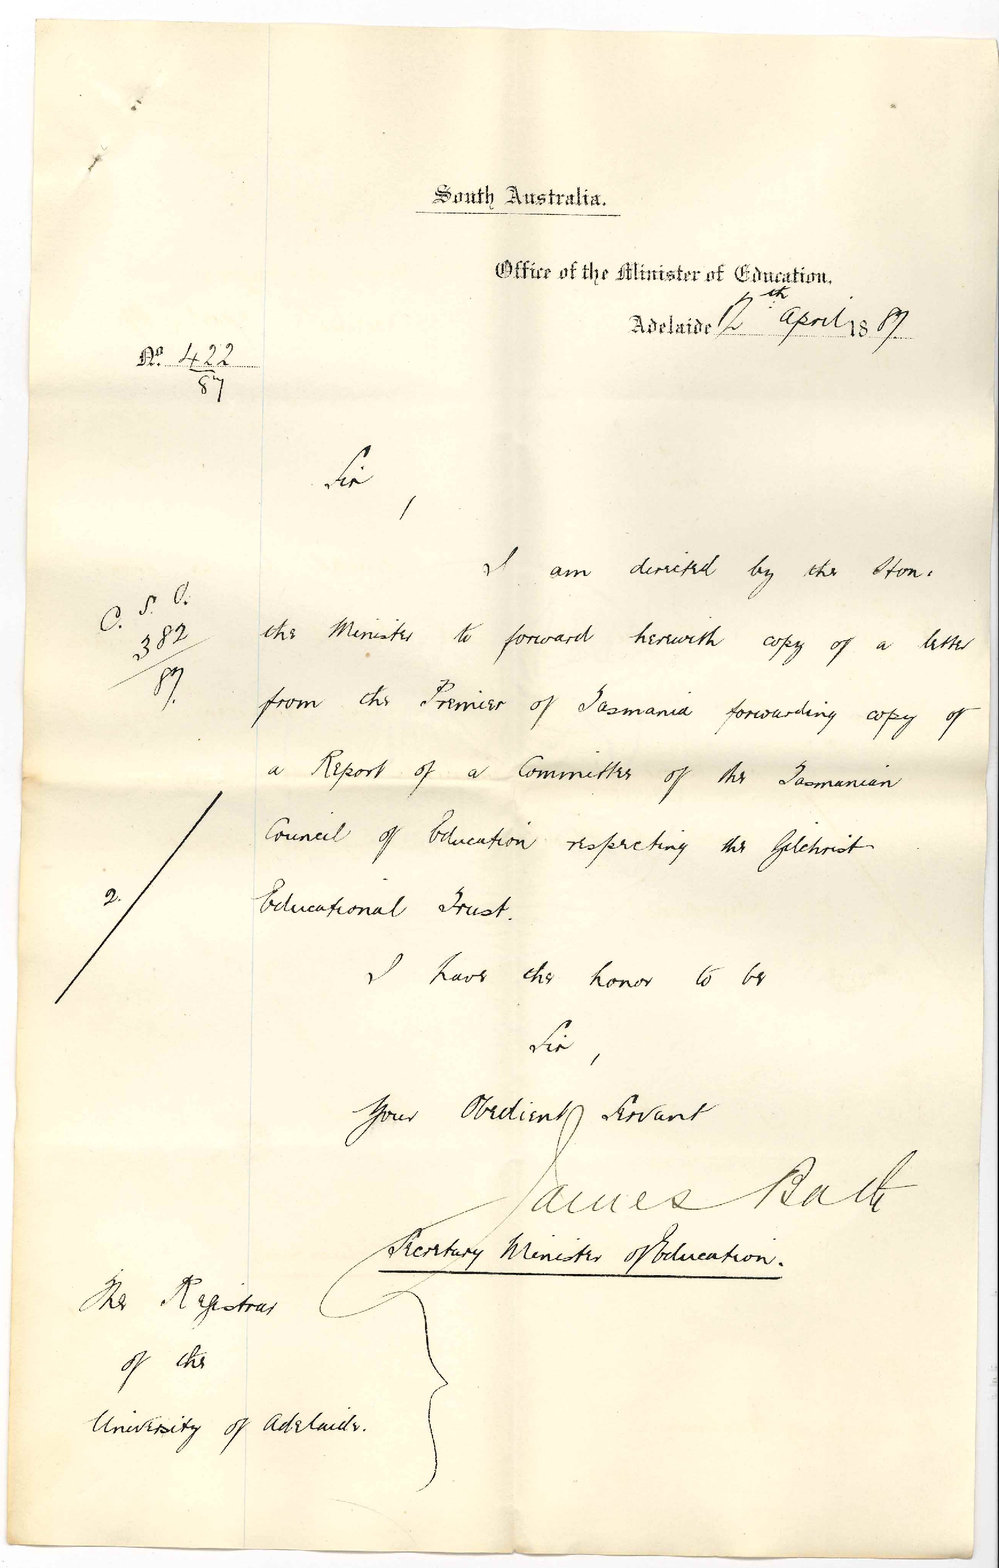 South Australia.
Office of the Minister of Education.
Adelaide 12th April 1887.
No. 422
87
Sir,
I am directed by the Hon:
C. S. O.
382
87.
the Minister to forward herewith copy of a letter
from the Premier of Tasmania forwarding copy of
a Report of a Committee of the Tasmanian
Council of Education respecting the Gilchrist
2.
Educational Trust.
I have the honor to be
Sir,
Your Obedient Servant
James Bath
Secretary Minister of Education.
The Registrar
of the
University of Adelaide.